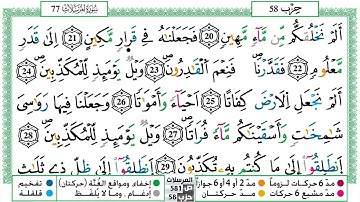 حِزْب 58
سُورَةُ المُرْسَلَات 77
أَلَمْ نَخْلُقكُّم مِّن مَّآءٍ مَّهِينٍ 20 فَجَعَلْنَٰهُ فِى قَرَارٍ مَّكِينٍ 21 إِلَىٰ قَدَرٍ
مَّعْلُومٍ 22 فَقَدَرْنَا فَنِعْمَ ٱلْقَٰدِرُونَ 23 وَيْلٌ يَوْمَئِذٍ لِّلْمُكَذِّبِينَ 24
أَلَمْ نَجْعَلِ ٱلْأَرْضَ كِفَاتًا 25 أَحْيَآءً وَأَمْوَٰتًا 26 وَجَعَلْنَا فِيهَا رَوَٰسِىَ
شَٰمِخَٰتٍ وَأَسْقَيْنَٰكُم مَّآءً فُرَاتًا 27 وَيْلٌ يَوْمَئِذٍ لِّلْمُكَذِّبِينَ 28
ٱنطَلِقُوٓا۟ إِلَىٰ مَا كُنتُم بِهِۦ تُكَذِّبُونَ 29 ٱنطَلِقُوٓا۟ إِلَىٰ ظِلٍّ ذِى ثَلَٰثِ
مدّ 6 حركات لزوماً مدّ 2 أو 4 أو 6 جوازاً
مدّ مشبع 6 حركات مدّ حركتان
المرسلات
ص 581
حزب 58
إخفاء، ومواقع الغُنَّة (حركتان) تفخيم
إدغام، وما لا يُلفَظ قلقلة